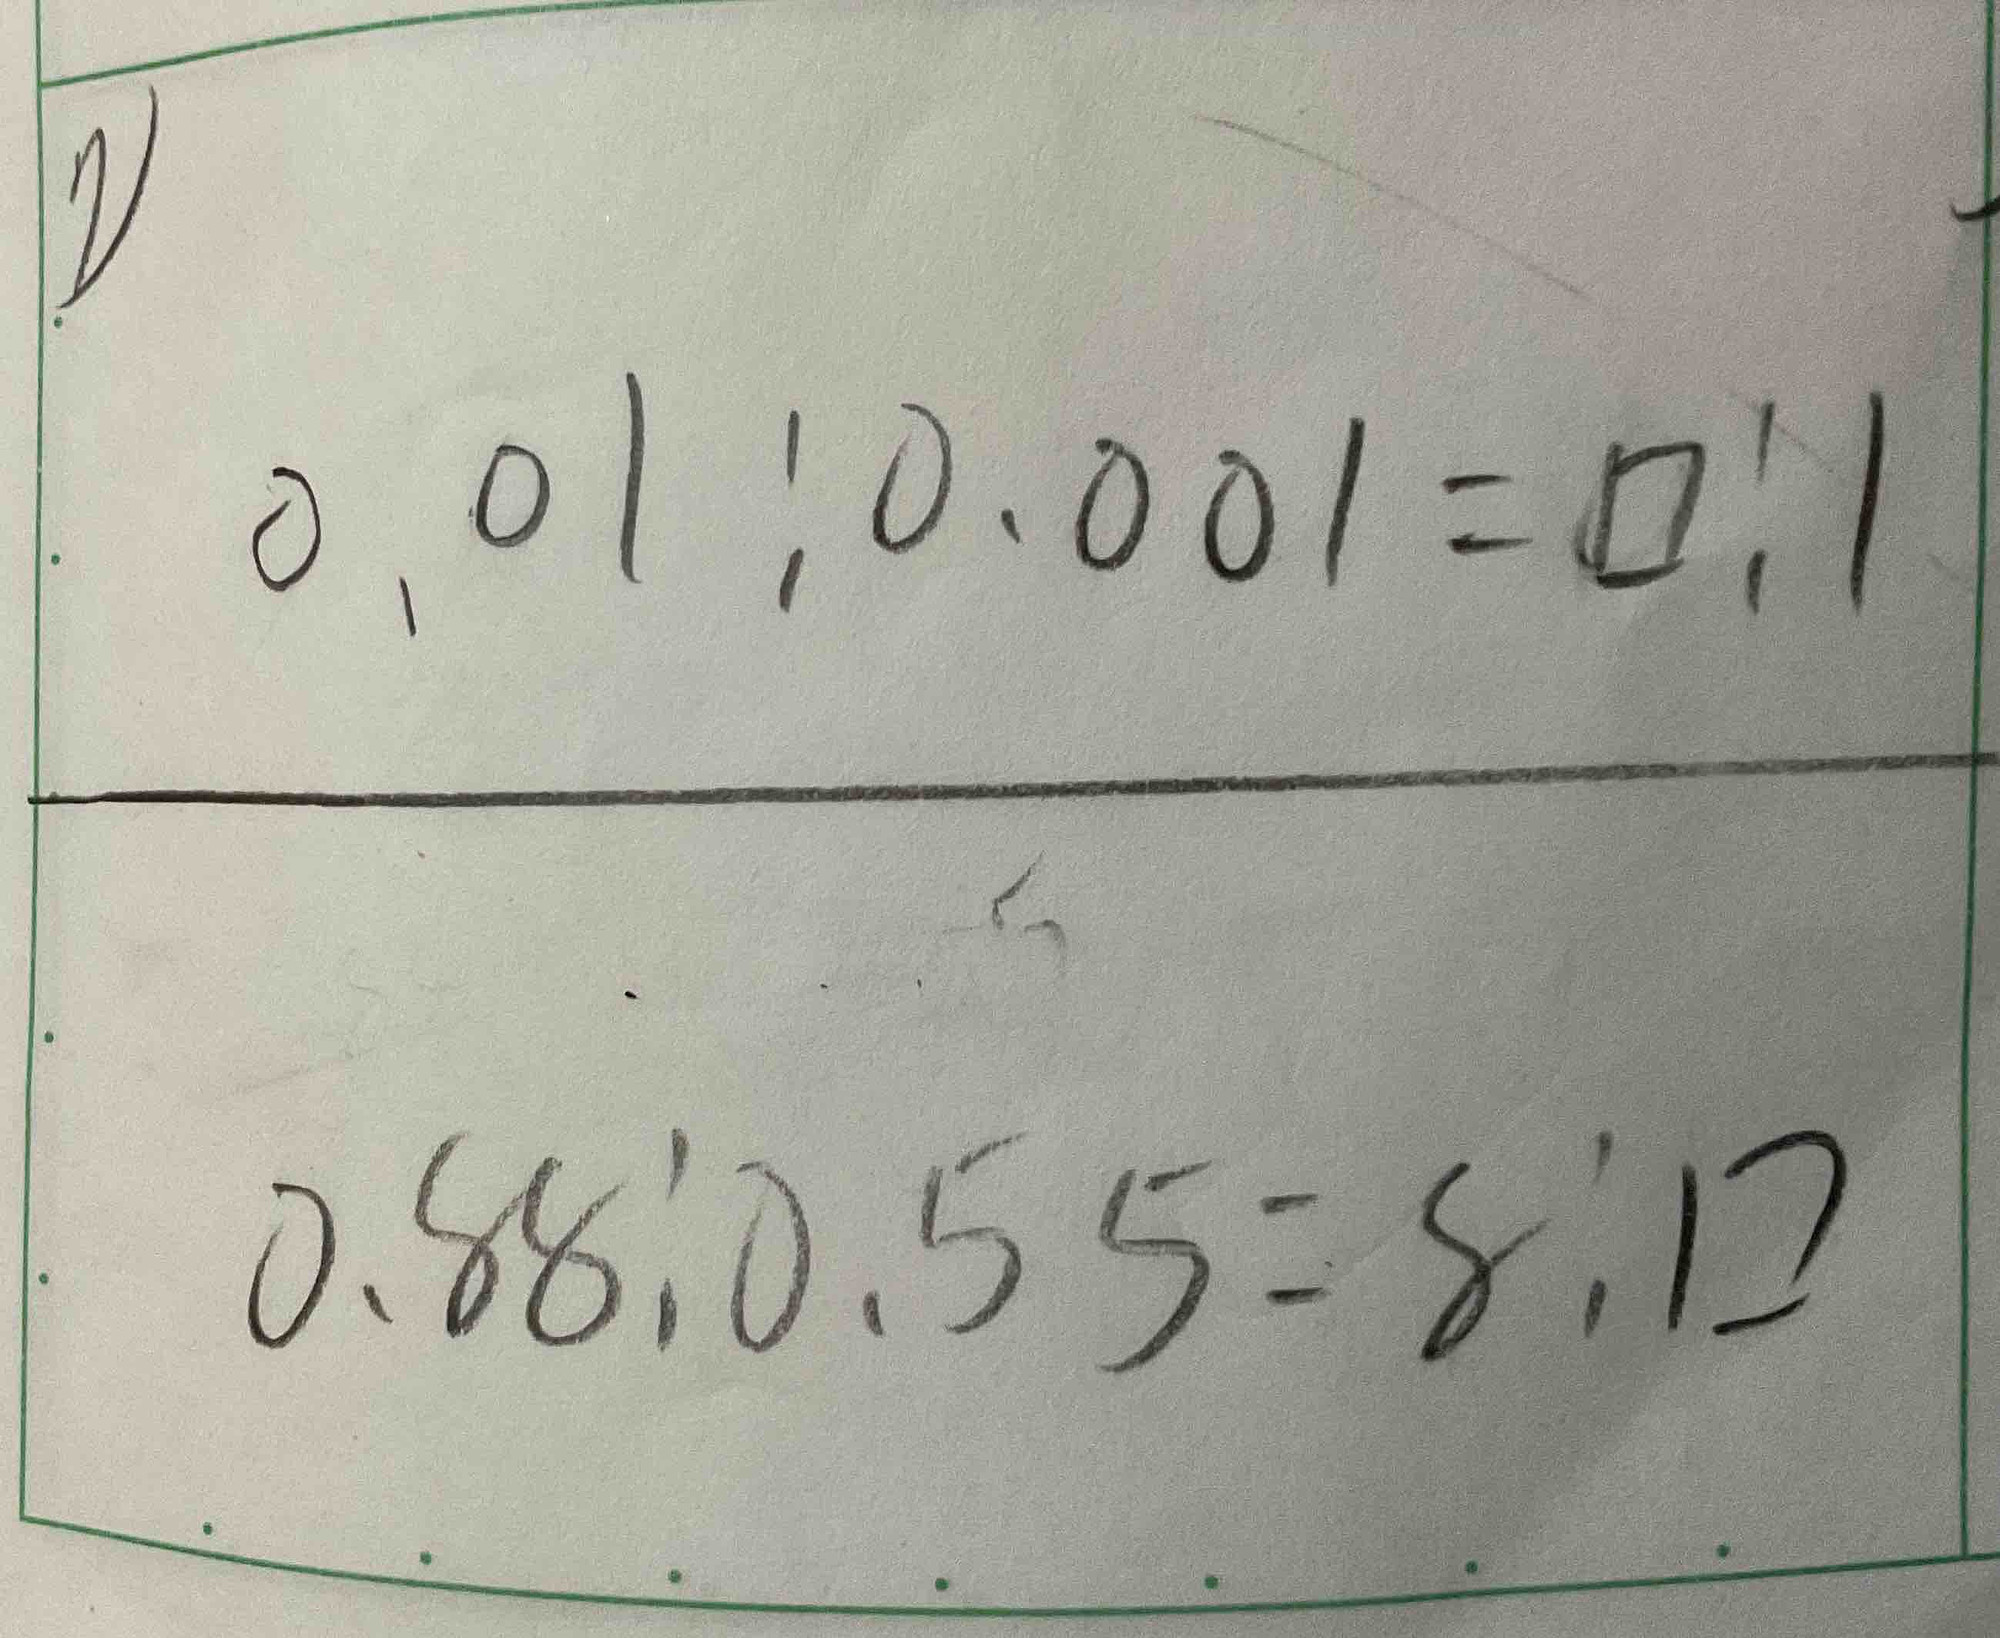 2)
0.01:0.001=□:1
0.88:0.55=8:□